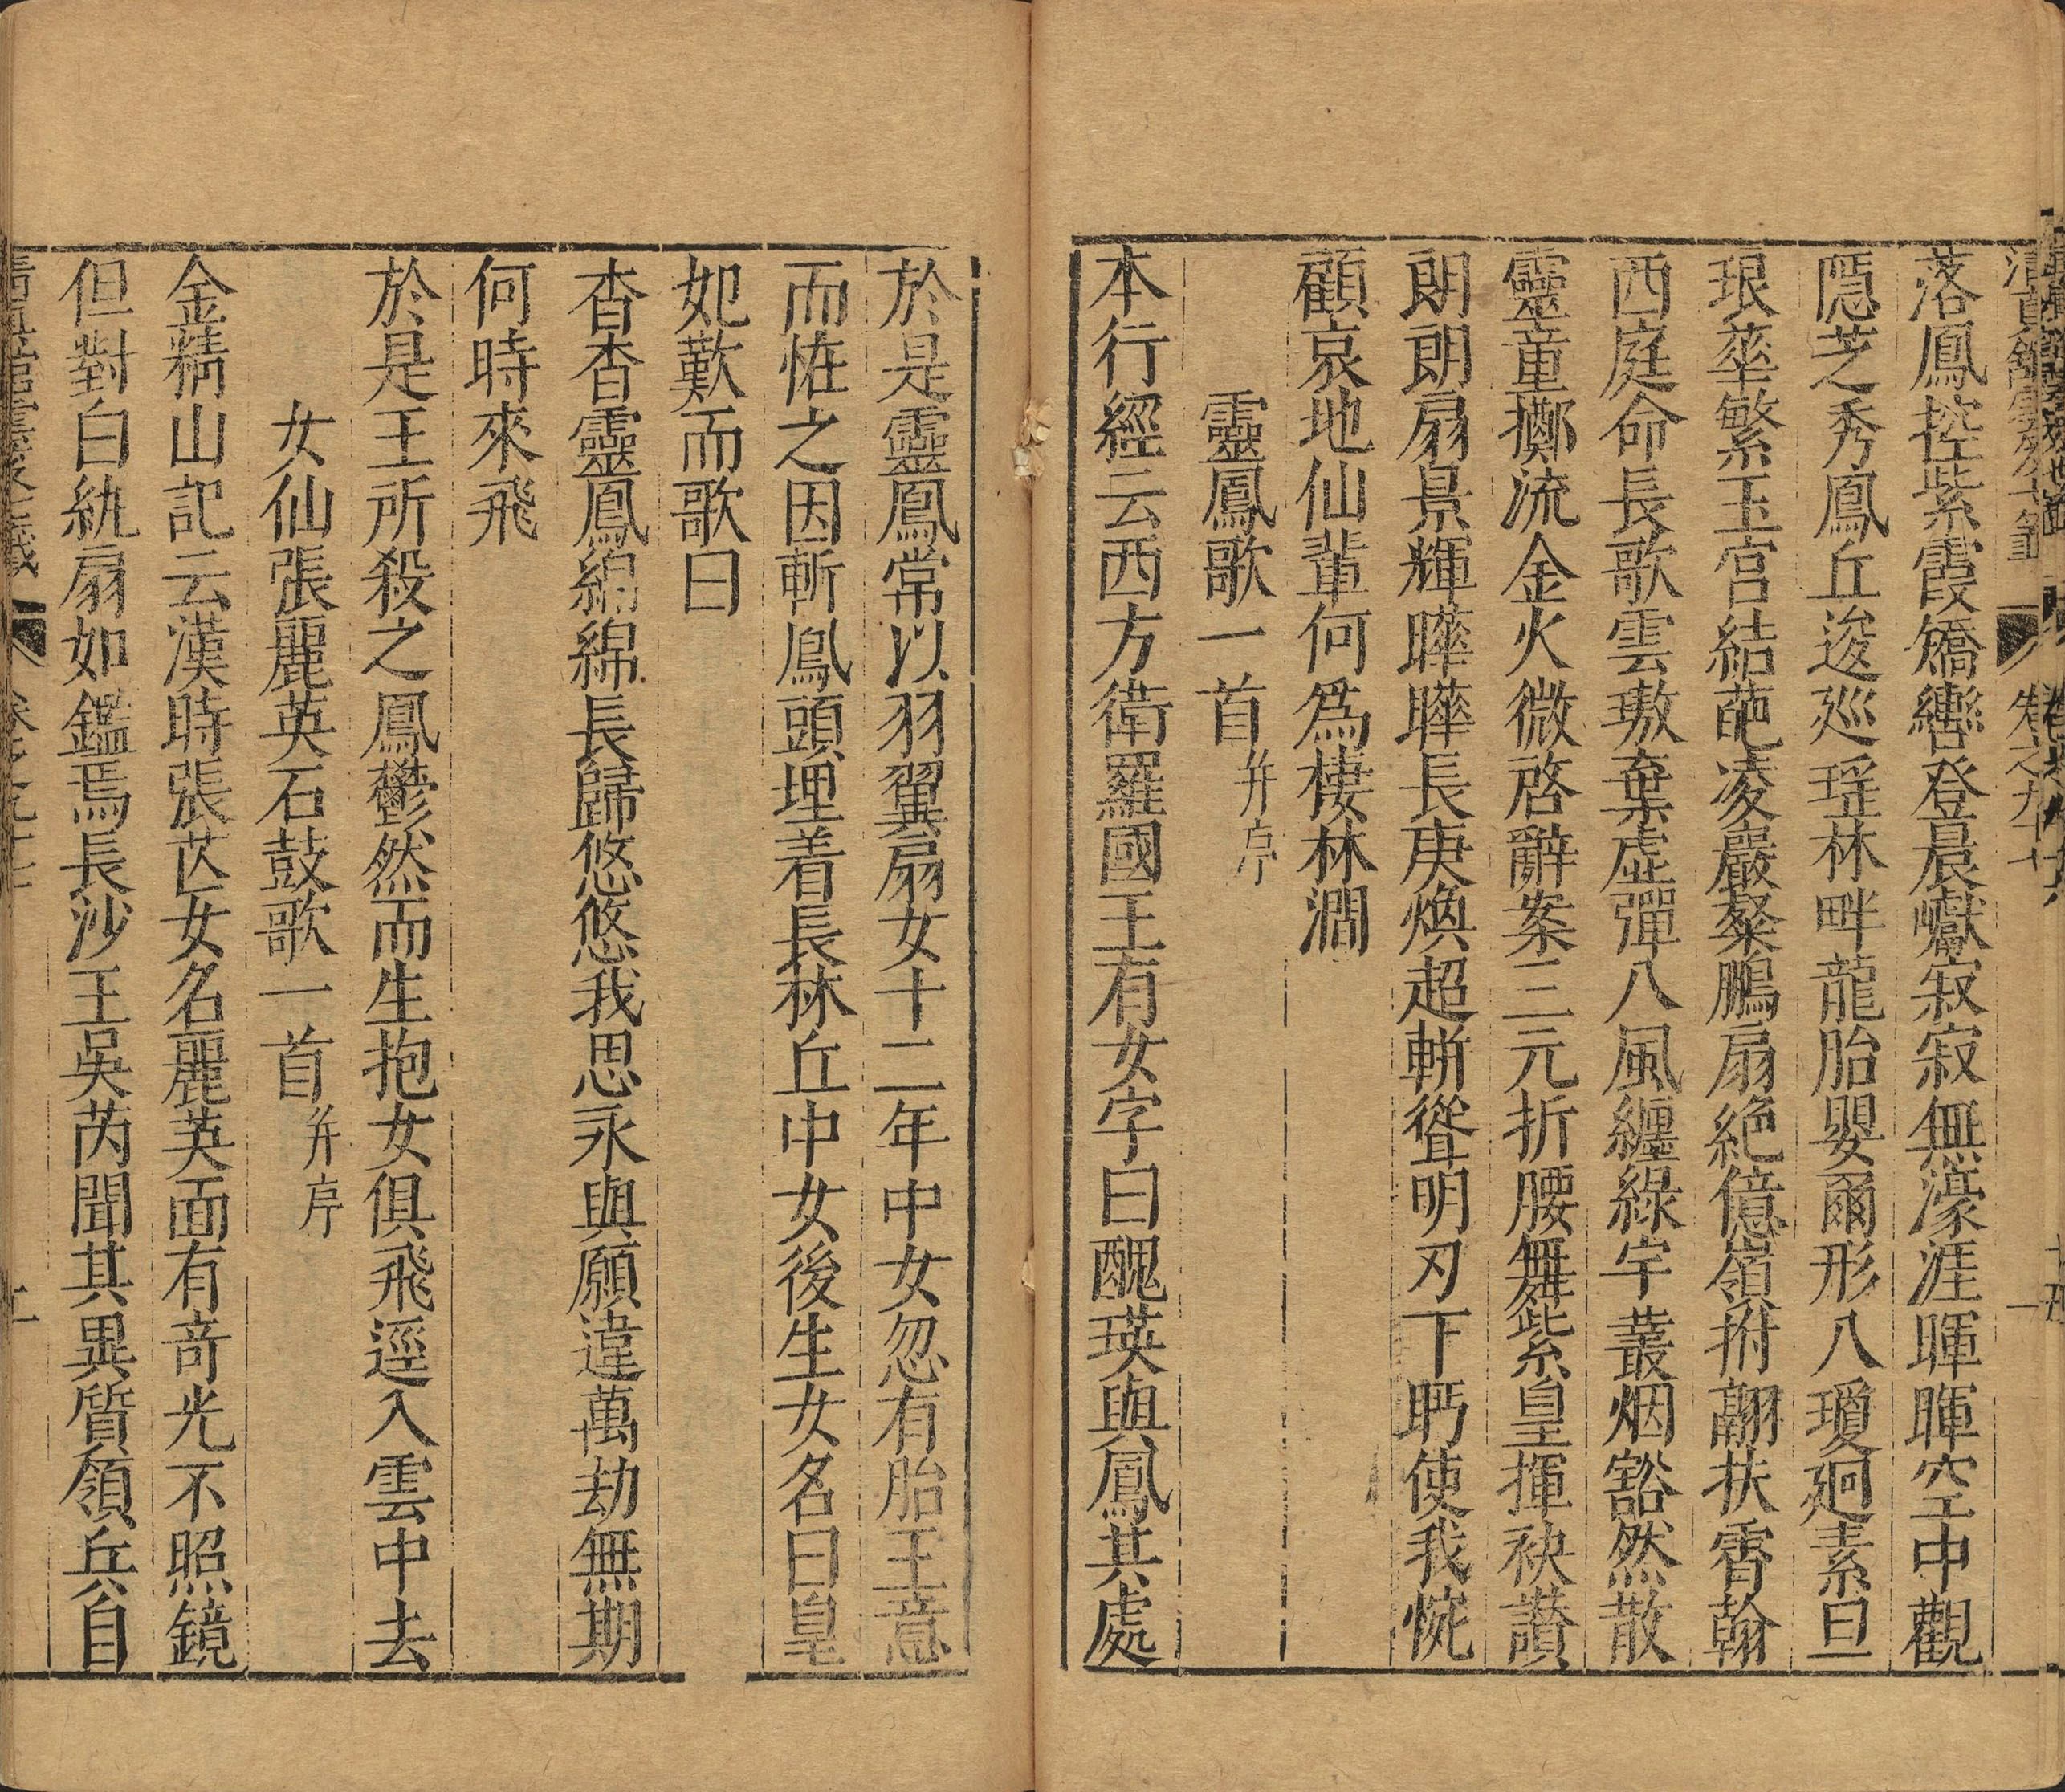 落鳳控紫霞矯轡登晨巘寂寂無濠涯暉暉空中觀
隱芝秀鳳丘逡廵瑤林畔龍胎嬰爾形八瓊廻素旦
琅華繁玉宮結葩凌巖粲鵬扇絶億嶺拊翮扶霄翰
西庭命長歌雲璈棄虛彈八風纏綠宇叢烟豁然散
靈童擲流金火微啓辭案三元折腰舞紫皇揮袂讃
朗朗扇景輝曄曄長庚煥超軿聳明刃下眄使我惋
顧哀地仙輩何爲棲林澗
靈鳳歌一首并序
本行經云西方衛羅國王有女字曰醜瑛與鳳其處
於是靈鳳常以羽翼扇女十二年中女忽有胎王意
而恠之因斬鳳頭埋着長林丘中女後生女名曰皇
妃歎而歌曰
杳杳靈鳳綿綿長歸悠悠我思永與願違萬劫無期
何時來飛
於是王所殺之鳳鬱然而生抱女俱飛逕入雲中去
女仙張麗英石鼓歌一首并序
金精山記云漢時張芒女名麗英面有奇光不照鏡
但對白紈扇如鑑焉長沙王吳芮聞其異質領兵自